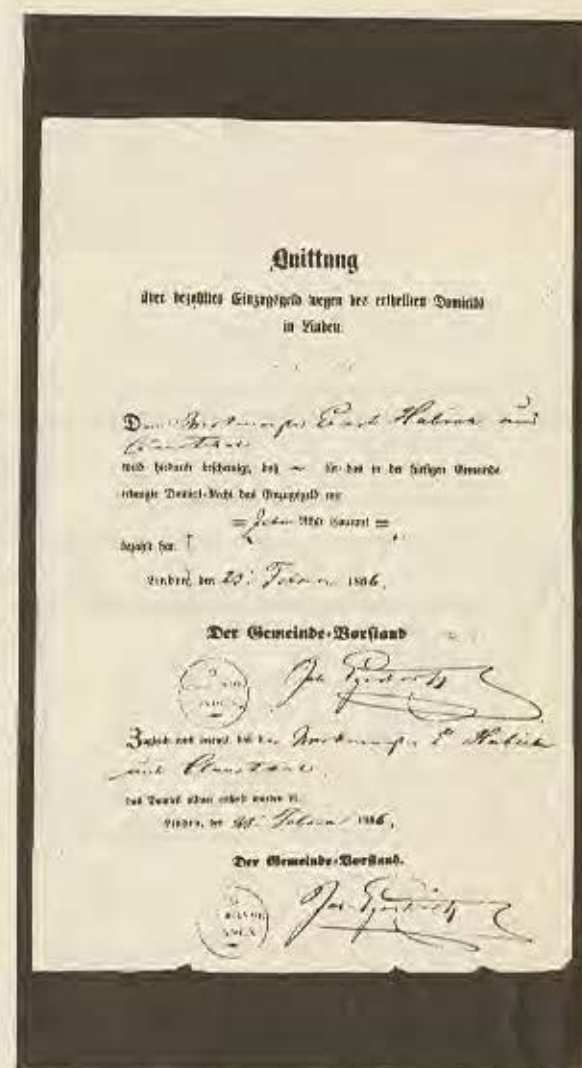 Quittung
über bezahltes Einzugsgeld wegen des ertheilten Domicils
in Linden.
Dem Werkmeister Habich und
wird hiedurch bescheinigt, daß für das in der hiesigen Gemeinde
erlangte Domicil-Recht das Einzugsgeld mit
= Zehn Rthlr Courant =
bezahlt hat.
Linden, den 23. Februar 1866.
Der Gemeinde-Vorstand
LINDEN
Zugleich wird bezeugt, daß dem Werkmeister E. Habich
das Domicil allhier ertheilt worden ist.
Linden, den Februar 1866.
Der Gemeinde-Vorstand.